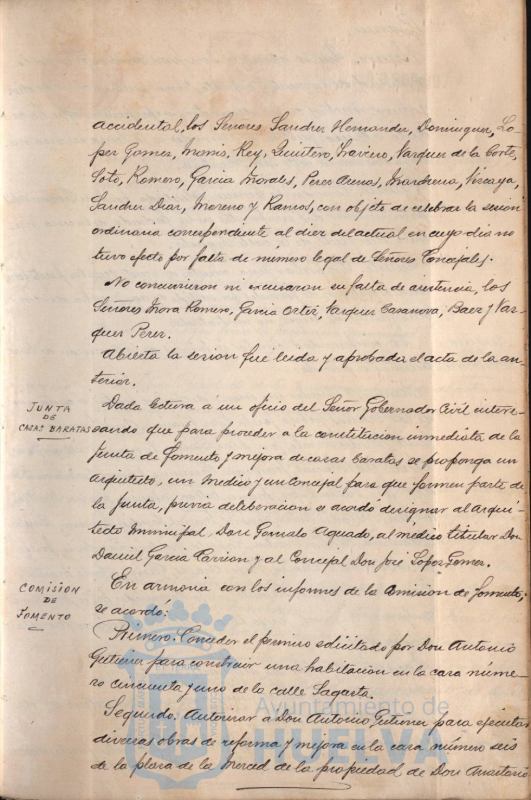 accidental, los Señores Sanchez Hernandez, Dominguez, Lo-
pez Gomez, Monis, Rey, Quintero, Travieso, Vazquez de la Corte,
Soto, Romero, Garcia Morales, Perez Arenas, Marchena, Vizcaya,
Sanchez Diaz, Moreno y Ramos, con objeto de celebrar la sesion
ordinaria correspondiente al diez del actual en cuyo dia no
tuvo efecto por falta de número legal de Señores Concejales.
No concurrieron ni excusaron su falta de asistencia, los
Señores Mora Romero, Garcia Ortiz, Vazquez Casanova, Baez y Vaz-
quez Perez.
Abierta la sesion fué leida y aprobada el acta de la an-
terior.
JUNTA
DE
CASAS BARATAS
Dada lectura á un oficio del Señor Gobernador Civil intere-
sando que para proceder a la constitucion inmediata de la
Junta de fomento y mejora de casas baratas se proponga un
arquitecto, un medico y un concejal para que formen parte de
la Junta, previa deliberacion se acordo designar al arqui-
tecto municipal Don Gonzalo Aguado, al medico titular Don
Daniel Garcia Carrion y al Concejal Don José Lopez Gomez.
COMISION
DE
FOMENTO
En armonia con los informes de la Comision de fomento,
se acordó:
Primero. Conceder el permiso solicitado por Don Antonio
Gutierrez para construir una habitacion en la casa núme-
ro cincuenta y uno de la calle Sagasta.
Segundo. Autorizar a Don Antonio Gutierrez para ejecutar
diversas obras de reforma y mejora en la casa número seis
de la plaza de la Merced de la propiedad de Don Anastasio
Ayuntamiento de
HUELVA